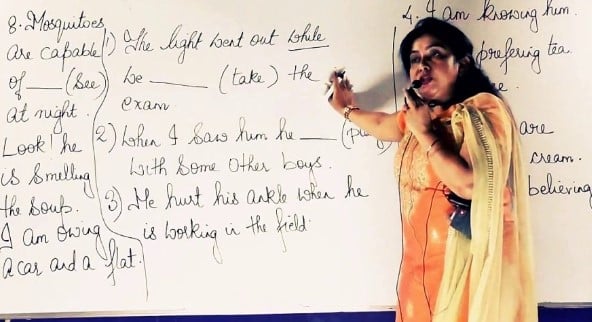 8. Mosquitoes
are capable
of ___ (See)
at night.
Look! he
is Smelling
the Soup.
I am Owing
a car and a flat.
1) The light went out while
we ___ (take) the
exam
2) When I Saw him he ___
With Some Other boys.
3) He hurt his ankle when he
is working in the field.
4. I am Knowing him.
prefering tea
are
cream.
believing